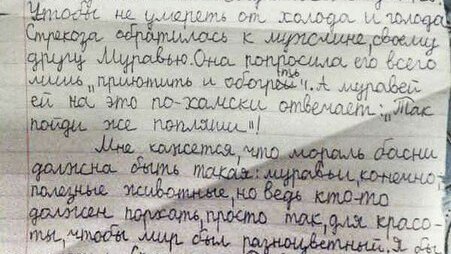 Чтобы не умереть от холода и голода
Стрекоза обратилась к мужчине, своему
другу Муравью. Она попросила его всего
лишь „приютить и обогреть". А муравей
ей на это по-хамски отвечает: „Так
пойди же попляши"!
Мне кажется, что мораль басни
должна быть такая: муравьи, конечно,
полезные животные, но ведь кто-то
должен порхать, просто так, для красо-
ты, чтобы мир был разноцветный. Я бы